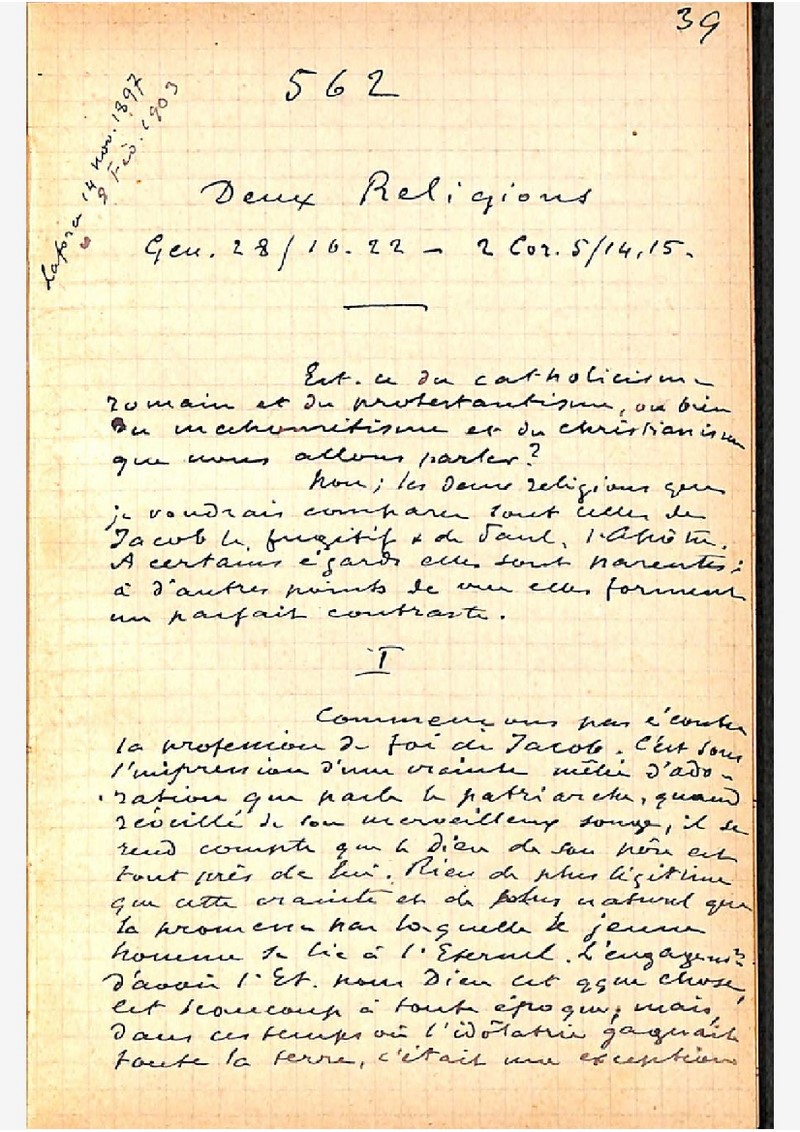 39
562
Laforce 14 nov. 1897
" 8 Fév. 1903
Deux Religions
Gen. 28/16.22 - 2 Cor. 5/14,15.
Est-ce du catholicisme
romain et du protestantisme, ou bien
du mahométisme et du christianisme
que nous allons parler?
Non; les deux religions que
je voudrais comparer sont celles de
Jacob le fugitif & de Paul, l'Apôtre.
A certains égards elles sont parentes;
à d'autres points de vue elles forment
un parfait contraste.
I
Commençons par écouter
la profession de foi de Jacob. C'est sous
l'impression d'une crainte mêlée d'ado-
ration que parle le patriarche, quand
réveillé de son merveilleux songe, il se
rend compte que le Dieu de son père est
tout près de lui. Rien de plus légitime
que cette crainte et de plus naturel que
la promesse par laquelle le jeune
homme se lie à l'Eternel. L'engagemt
d'avoir l'Et. pour Dieu est qque chose,
est beaucoup à toute époque; mais,
dans ces temps où l'idôlatrie gagnait
toute la terre, c'était une exception